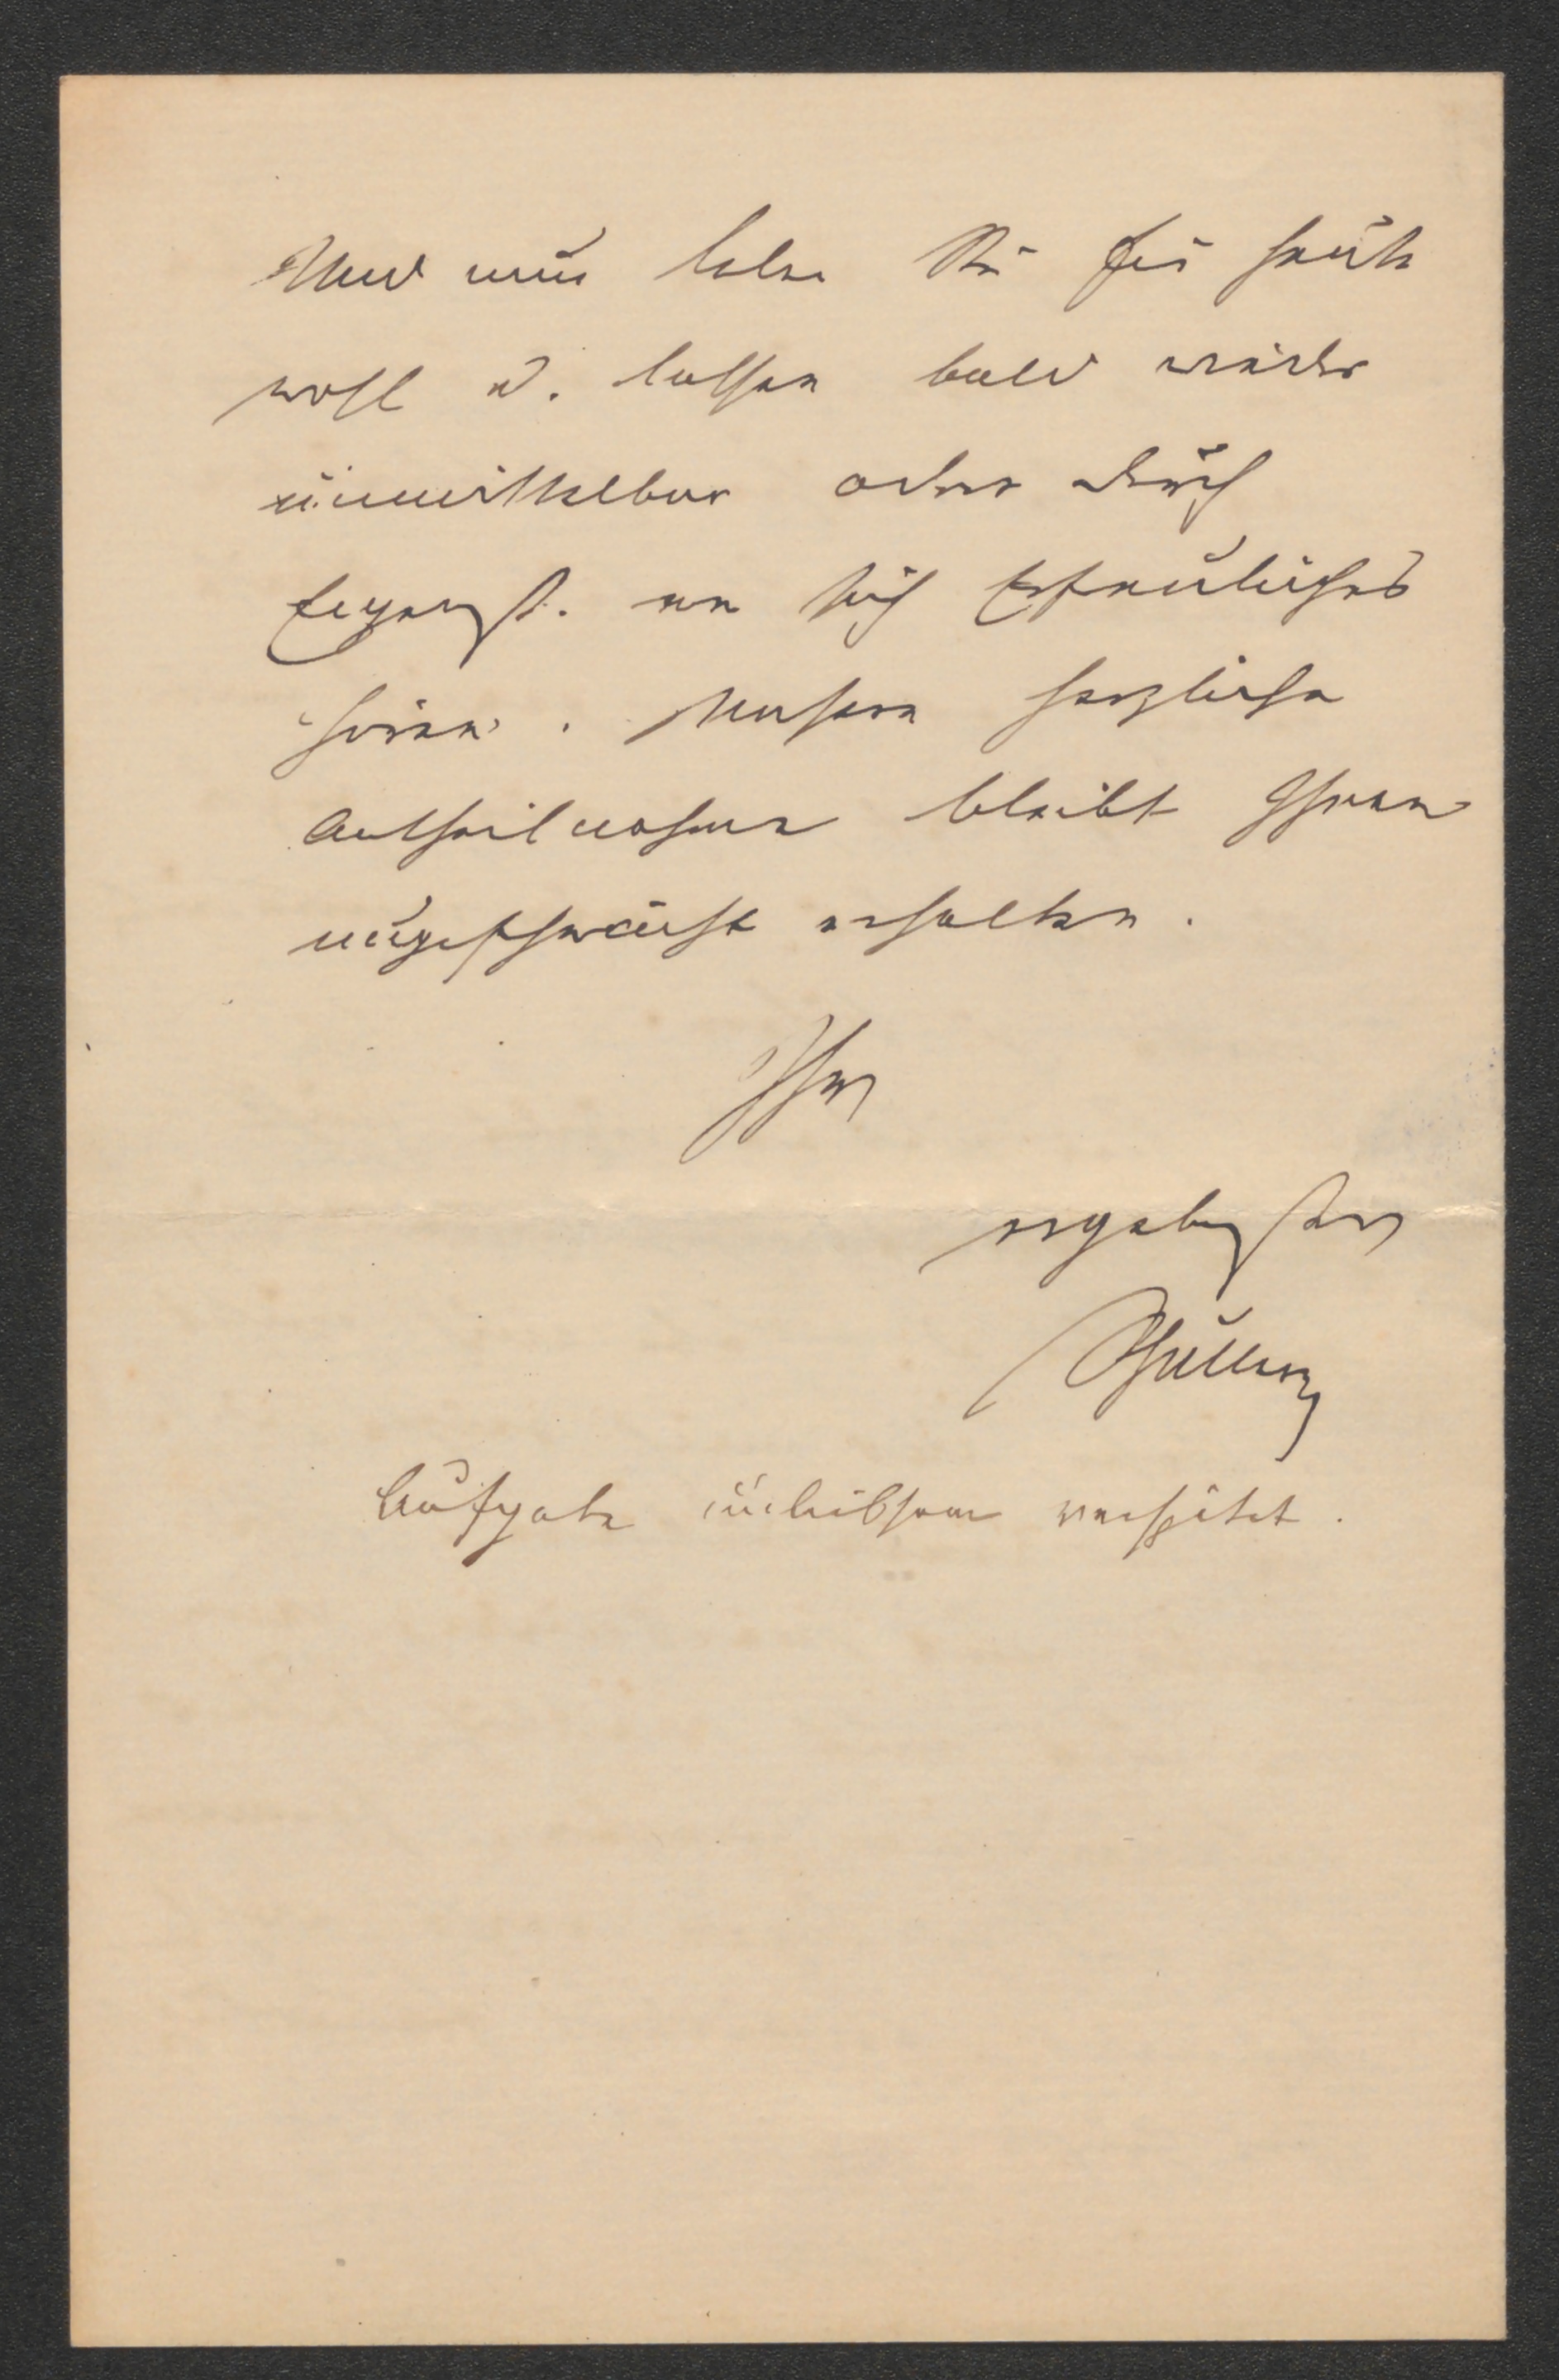 Und nun leben Sie für heute
wohl u. lassen bald wieder
unmittelbar oder durch
an sich Erfreuliches
hören. Unsere herzliche
Antheilnahme bleibt Ihnen
ungeschwächt erhalten.
Ihr
ergebenster
Aufgabe unliebsam verspätet.